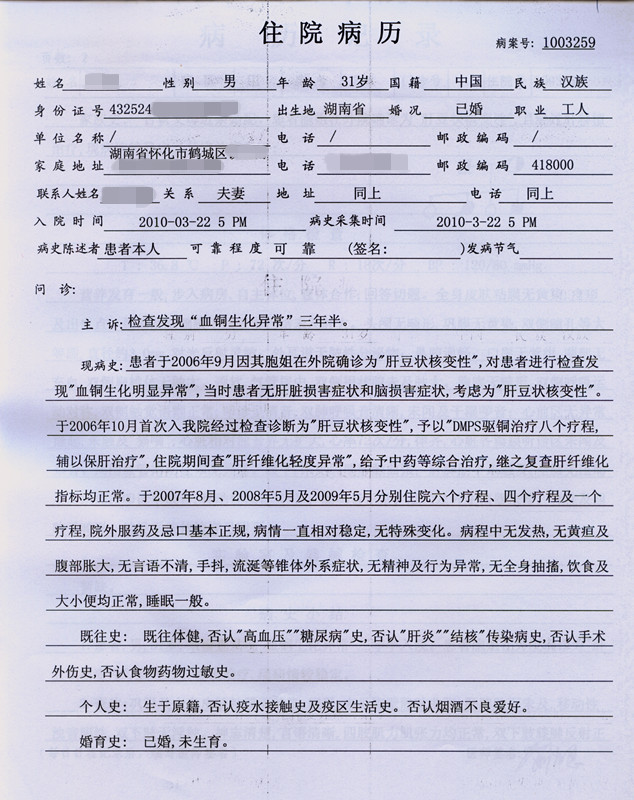 住院病历
病案号: 1003259
姓名 性别 男 年龄 31岁 国籍 中国 民族 汉族
身份证号 432524 出生地 湖南省 婚况 已婚 职业 工人
单位名称 / 电话 / 邮政编码 /
家庭地址 湖南省怀化市鹤城区 电话 邮政编码 418000
联系人姓名 关系 夫妻 地址 同上 电话 同上
入院时间 2010-03-22 5 PM 病史采集时间 2010-3-22 5 PM
病史陈述者 患者本人 可靠程度 可靠 (签名: )发病节气
问诊:
主诉: 检查发现“血铜生化异常”三年半。
现病史: 患者于2006年9月因其胞姐在外院确诊为"肝豆状核变性", 对患者进行检查发
现"血铜生化明显异常", 当时患者无肝脏损害症状和脑损害症状, 考虑为"肝豆状核变性"。
于2006年10月首次入我院经过检查诊断为"肝豆状核变性", 予以"DMPS驱铜治疗八个疗程,
辅以保肝治疗", 住院期间查"肝纤维化轻度异常", 给予中药等综合治疗, 继之复查肝纤维化
指标均正常。于2007年8月、2008年5月及2009年5月分别住院六个疗程、四个疗程及一个
疗程, 院外服药及忌口基本正规, 病情一直相对稳定, 无特殊变化。病程中无发热, 无黄疸及
腹部胀大, 无言语不清, 手抖, 流涎等锥体外系症状, 无精神及行为异常, 无全身抽搐, 饮食及
大小便均正常, 睡眠一般。
既往史: 既往体健, 否认"高血压""糖尿病"史, 否认"肝炎""结核"传染病史, 否认手术
外伤史, 否认食物药物过敏史。
个人史: 生于原籍, 否认疫水接触史及疫区生活史。否认烟酒不良爱好。
婚育史: 已婚, 未生育。